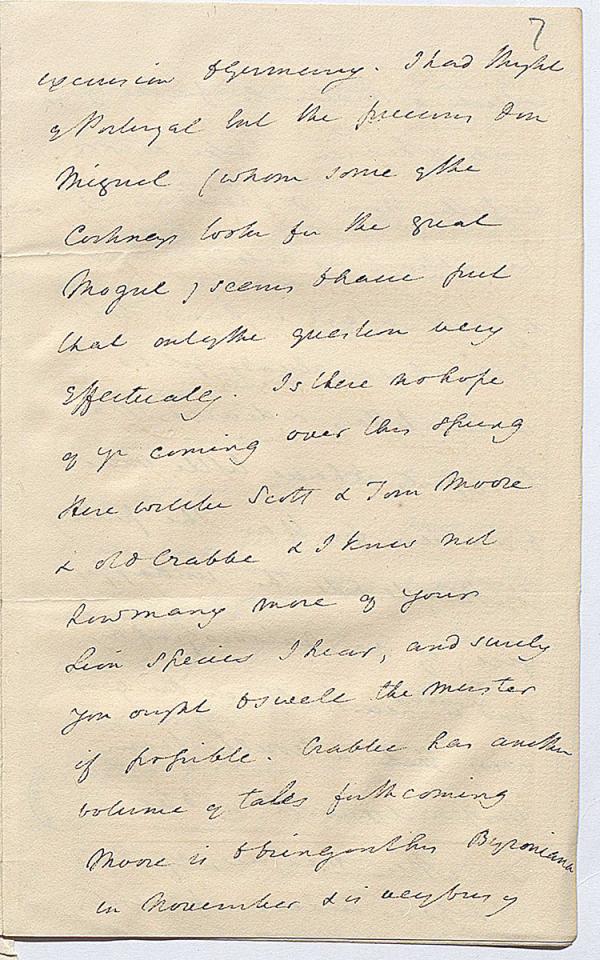 7
excursion to Germany. I had thought
of Portugal but the precious Don
Miguel (whom some of the
Cockneys look for the great
Mogul) seems to have put
that out of the question very
effectually. Is there no hope
of yr coming over this spring
Here will be Scott & Tom Moore
& old Crabbe & I know not
how many more of your
Lion species I hear, and surely
you ought to swell the muster
if possible. Crabbe has another
volume of tales forthcoming
Moore is to bring out his Byroniana
in November & is very busy